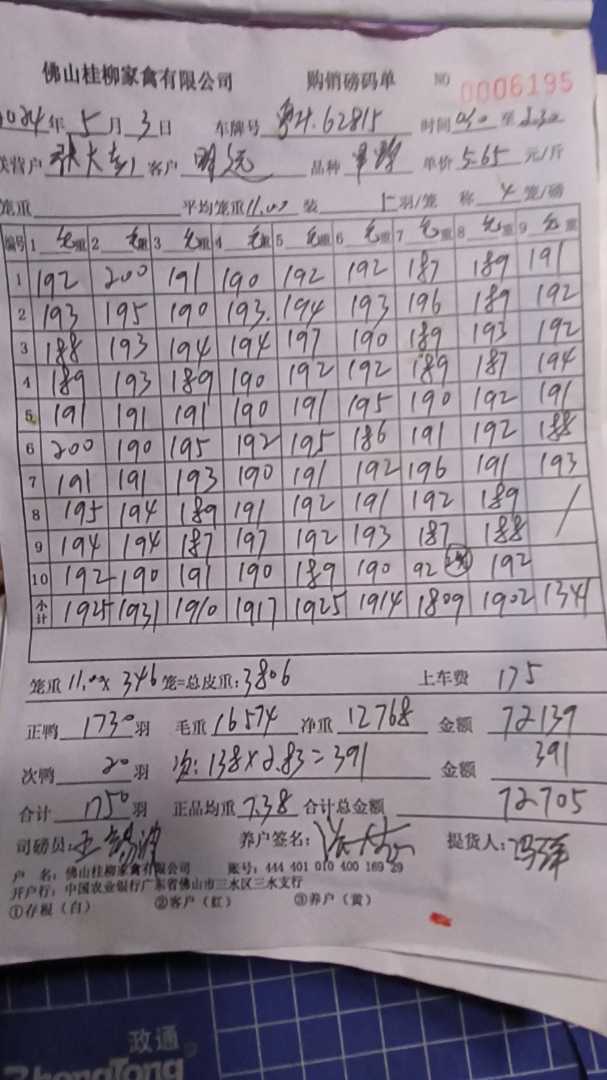 佛山桂柳家禽有限公司 购销磅码单 NO 0006195
2024年 5月 3日 车牌号 62815 时间 至
户 张大 客户 明远 品种 单价 5.65 元/斤
笼重 平均笼重 11.00 装 羽/笼 称 4 笼/磅
编号 1 毛重 2 毛重 3 毛重 4 毛重 5 毛重 6 毛重 7 毛重 8 毛重 9 毛重
1 192 200 191 190 192 192 187 189 191
2 193 195 190 193. 194 193 196 189 192
3 188 193 194 194 197 190 189 193 192
4 189 193 189 190 192 192 189 187 194
5 191 191 191 190 191 195 190 192 191
6 200 190 195 192 195 186 191 192 188
7 191 191 193 190 191 192 196 191 193
8 195 194 189 191 192 191 192 189 /
9 194 194 187 197 192 193 187 188
10 192 190 191 190 189 190 92 192
小计 1925 1931 1910 1917 1925 1914 1809 1902 1341
笼重 11.00 x 346 笼=总皮重: 3806 上车费 175
正鸭 1730 羽 毛重 16574 净重 12768 金额 72139
次鸭 20 羽 次: 138 x 2.83 = 391 金额 391
合计 1750 羽 正品均重 7.38 合计总金额 72705
司磅员: 王 养户签名: 提货人: 冯
户 名: 佛山桂柳家禽有限公司 账号: 444 401 010 400 169 29
开户行: 中国农业银行广东省佛山市三水区三水支行
①存根（白） ②客户（红） ③养户（黄）
政通
ZhengTong